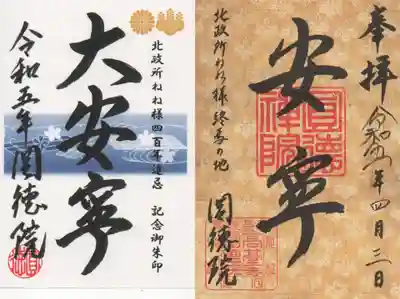 北政所ねね様四百年遠忌 記念御朱印
大安寧
令和五年 圓徳院
奉拝 令和四年四月三日
安寧
圓徳院
北政所ねね様終焉の地 圓徳院